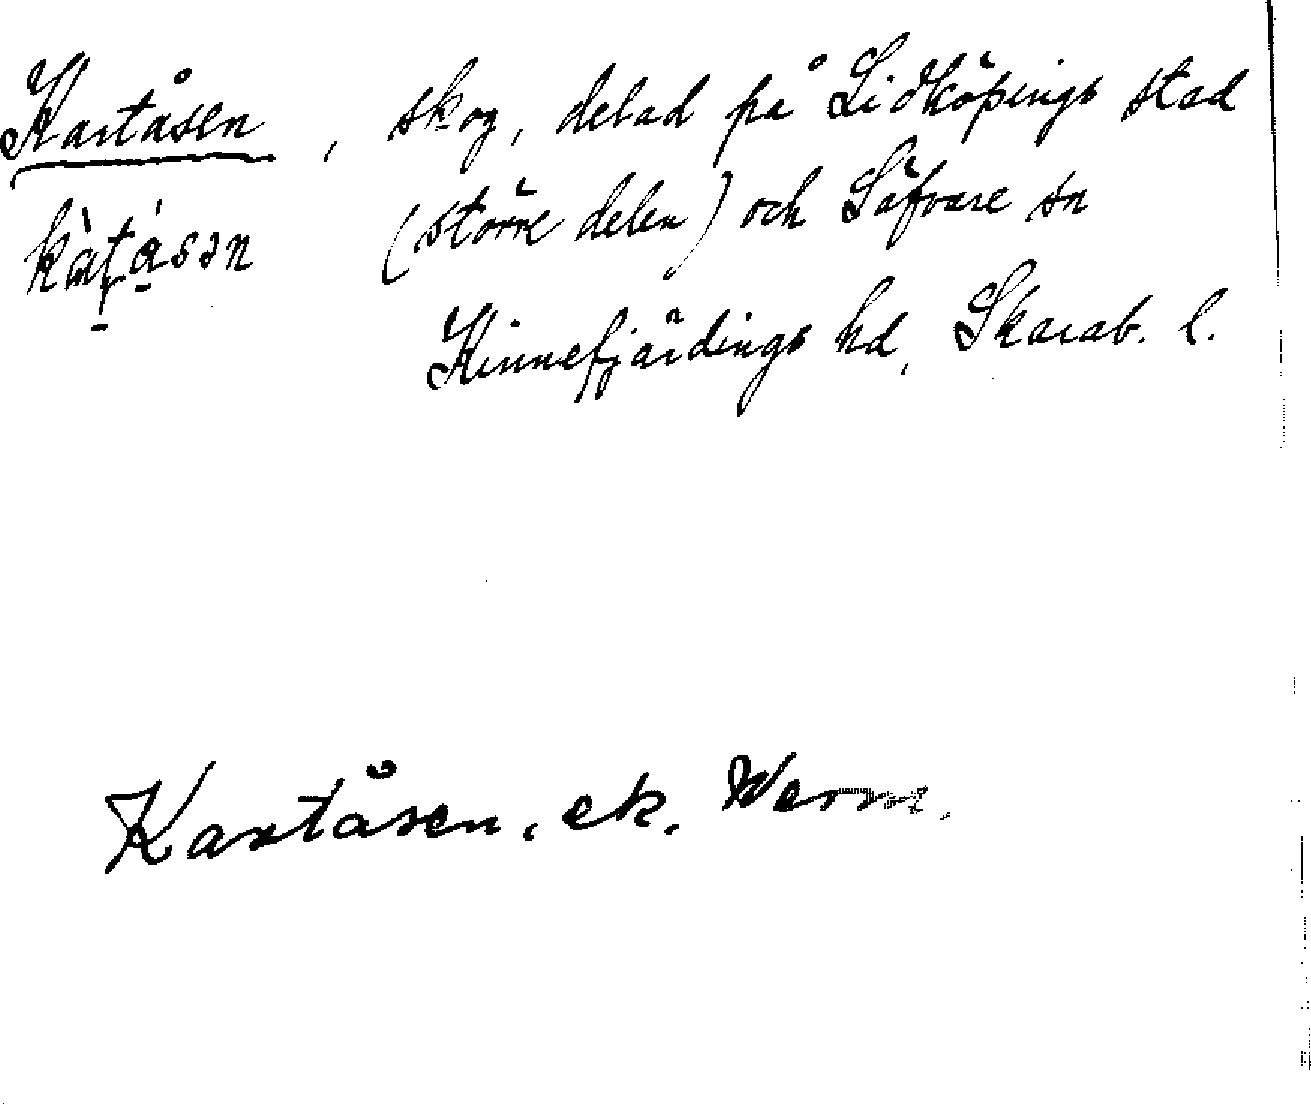 Kartåsen, skog, delad på Lidköpings stad
kàt̨ásən (större delen) och Säfvare sn
Kinnefjärdings hd, Skarab. l.
Kartåsen. ek. Werm.